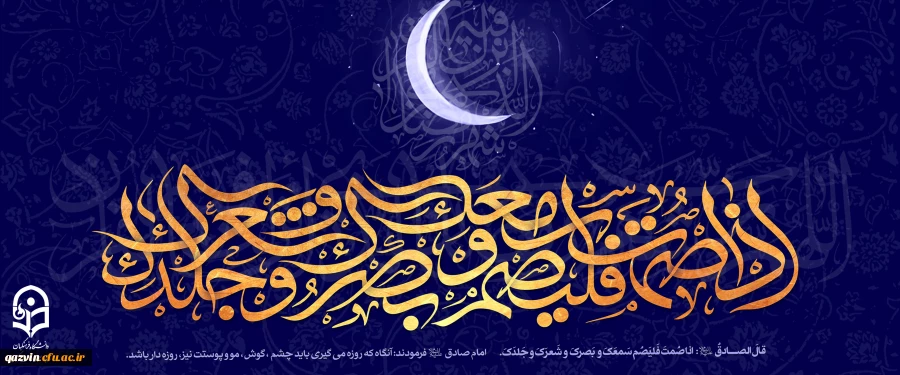 اذا صمت فلیصم سمعک و بصرک و شعرک و جلدک
قالَ الصــادقُ: اذا صُمتَ فَلیَصُم سَمعَکَ وَ بَصرَکَ وَ شَعرَکَ وَ جَلدَکَ. امام صادق فرمودند: آنگاه که روزه می گیری باید چشم ، گوش ، مو و پوستت نیز، روزه دار باشد.
دانشگاه فرهنگیان
qazvin.cfu.ac.ir